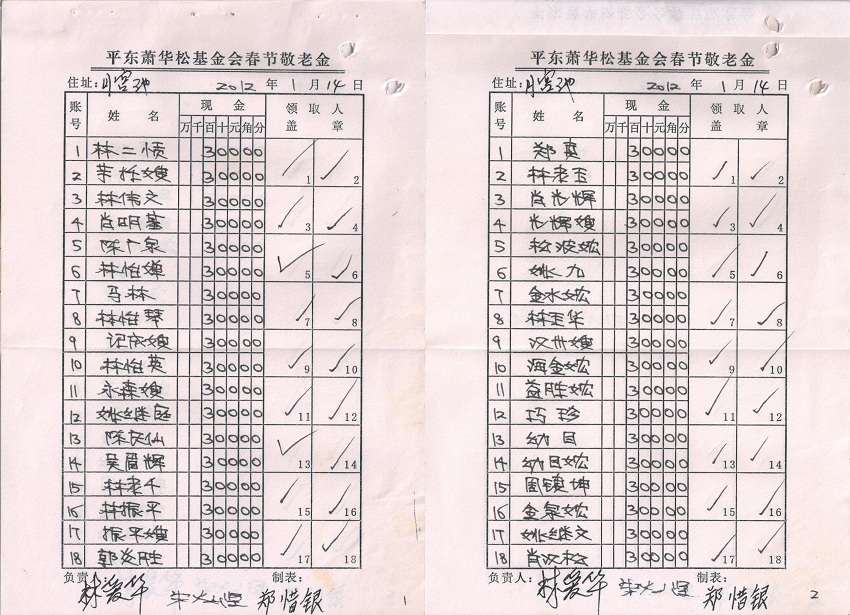 平东萧华松基金会春节敬老金
住址: 2012 年 1 月 14 日
账号 姓名 现金 领取人盖章
万 千 百 十 元 角 分
1 林二愤 30000 1
2 30000 2
3 林伟文 30000 3
4 肖明堇 30000 4
5 陈广泉 30000 5
6 林怡婵 30000 6
7 马林 30000 7
8 林怡琴 30000 8
9 30000 9
10 林怡英 30000 10
11 永森嫂 30000 11
12 姚继庭 30000 12
13 陈茂仙 30000 13
14 吴眉辉 30000 14
15 林老千 30000 15
16 林振平 30000 16
17 振平嫂 30000 17
18 郭炎胜 30000 18
负责人: 林爱华 制表: 郑惜银
1
平东萧华松基金会春节敬老金
住址: 2012 年 1 月 14 日
账号 姓名 现金 领取人盖章
万 千 百 十 元 角 分
1 郑真 30000 1
2 林老玉 30000 2
3 肖光辉 30000 3
4 光辉嫂 30000 4
5 松波妐 30000 5
6 姚九 30000 6
7 金水妐 30000 7
8 林玉华 30000 8
9 汉州嫂 30000 9
10 海金妐 30000 10
11 益胜妐 30000 11
12 巧珍 30000 12
13 幼目 30000 13
14 幼目妐 30000 14
15 周镇坤 30000 15
16 金泉妐 30000 16
17 姚继文 30000 17
18 肖汉松 30000 18
负责人: 林爱华 制表: 郑惜银
2